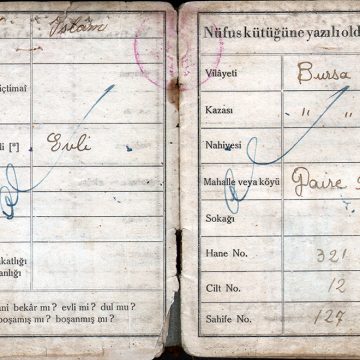 İslâm
içtimaî
li [*]
Evli
katlığı
anlığı
ni bekâr mı? evli mi? dul mu?
boşamış mı? boşanmış mı?
Nüfus kütüğüne yazılı old
Vilâyeti
Bursa
Kazası
" "
Nahiyesi
Mahalle veya köyü
Daire
Sokağı
Hane No.
321
Cilt No.
12
Sahife No.
127